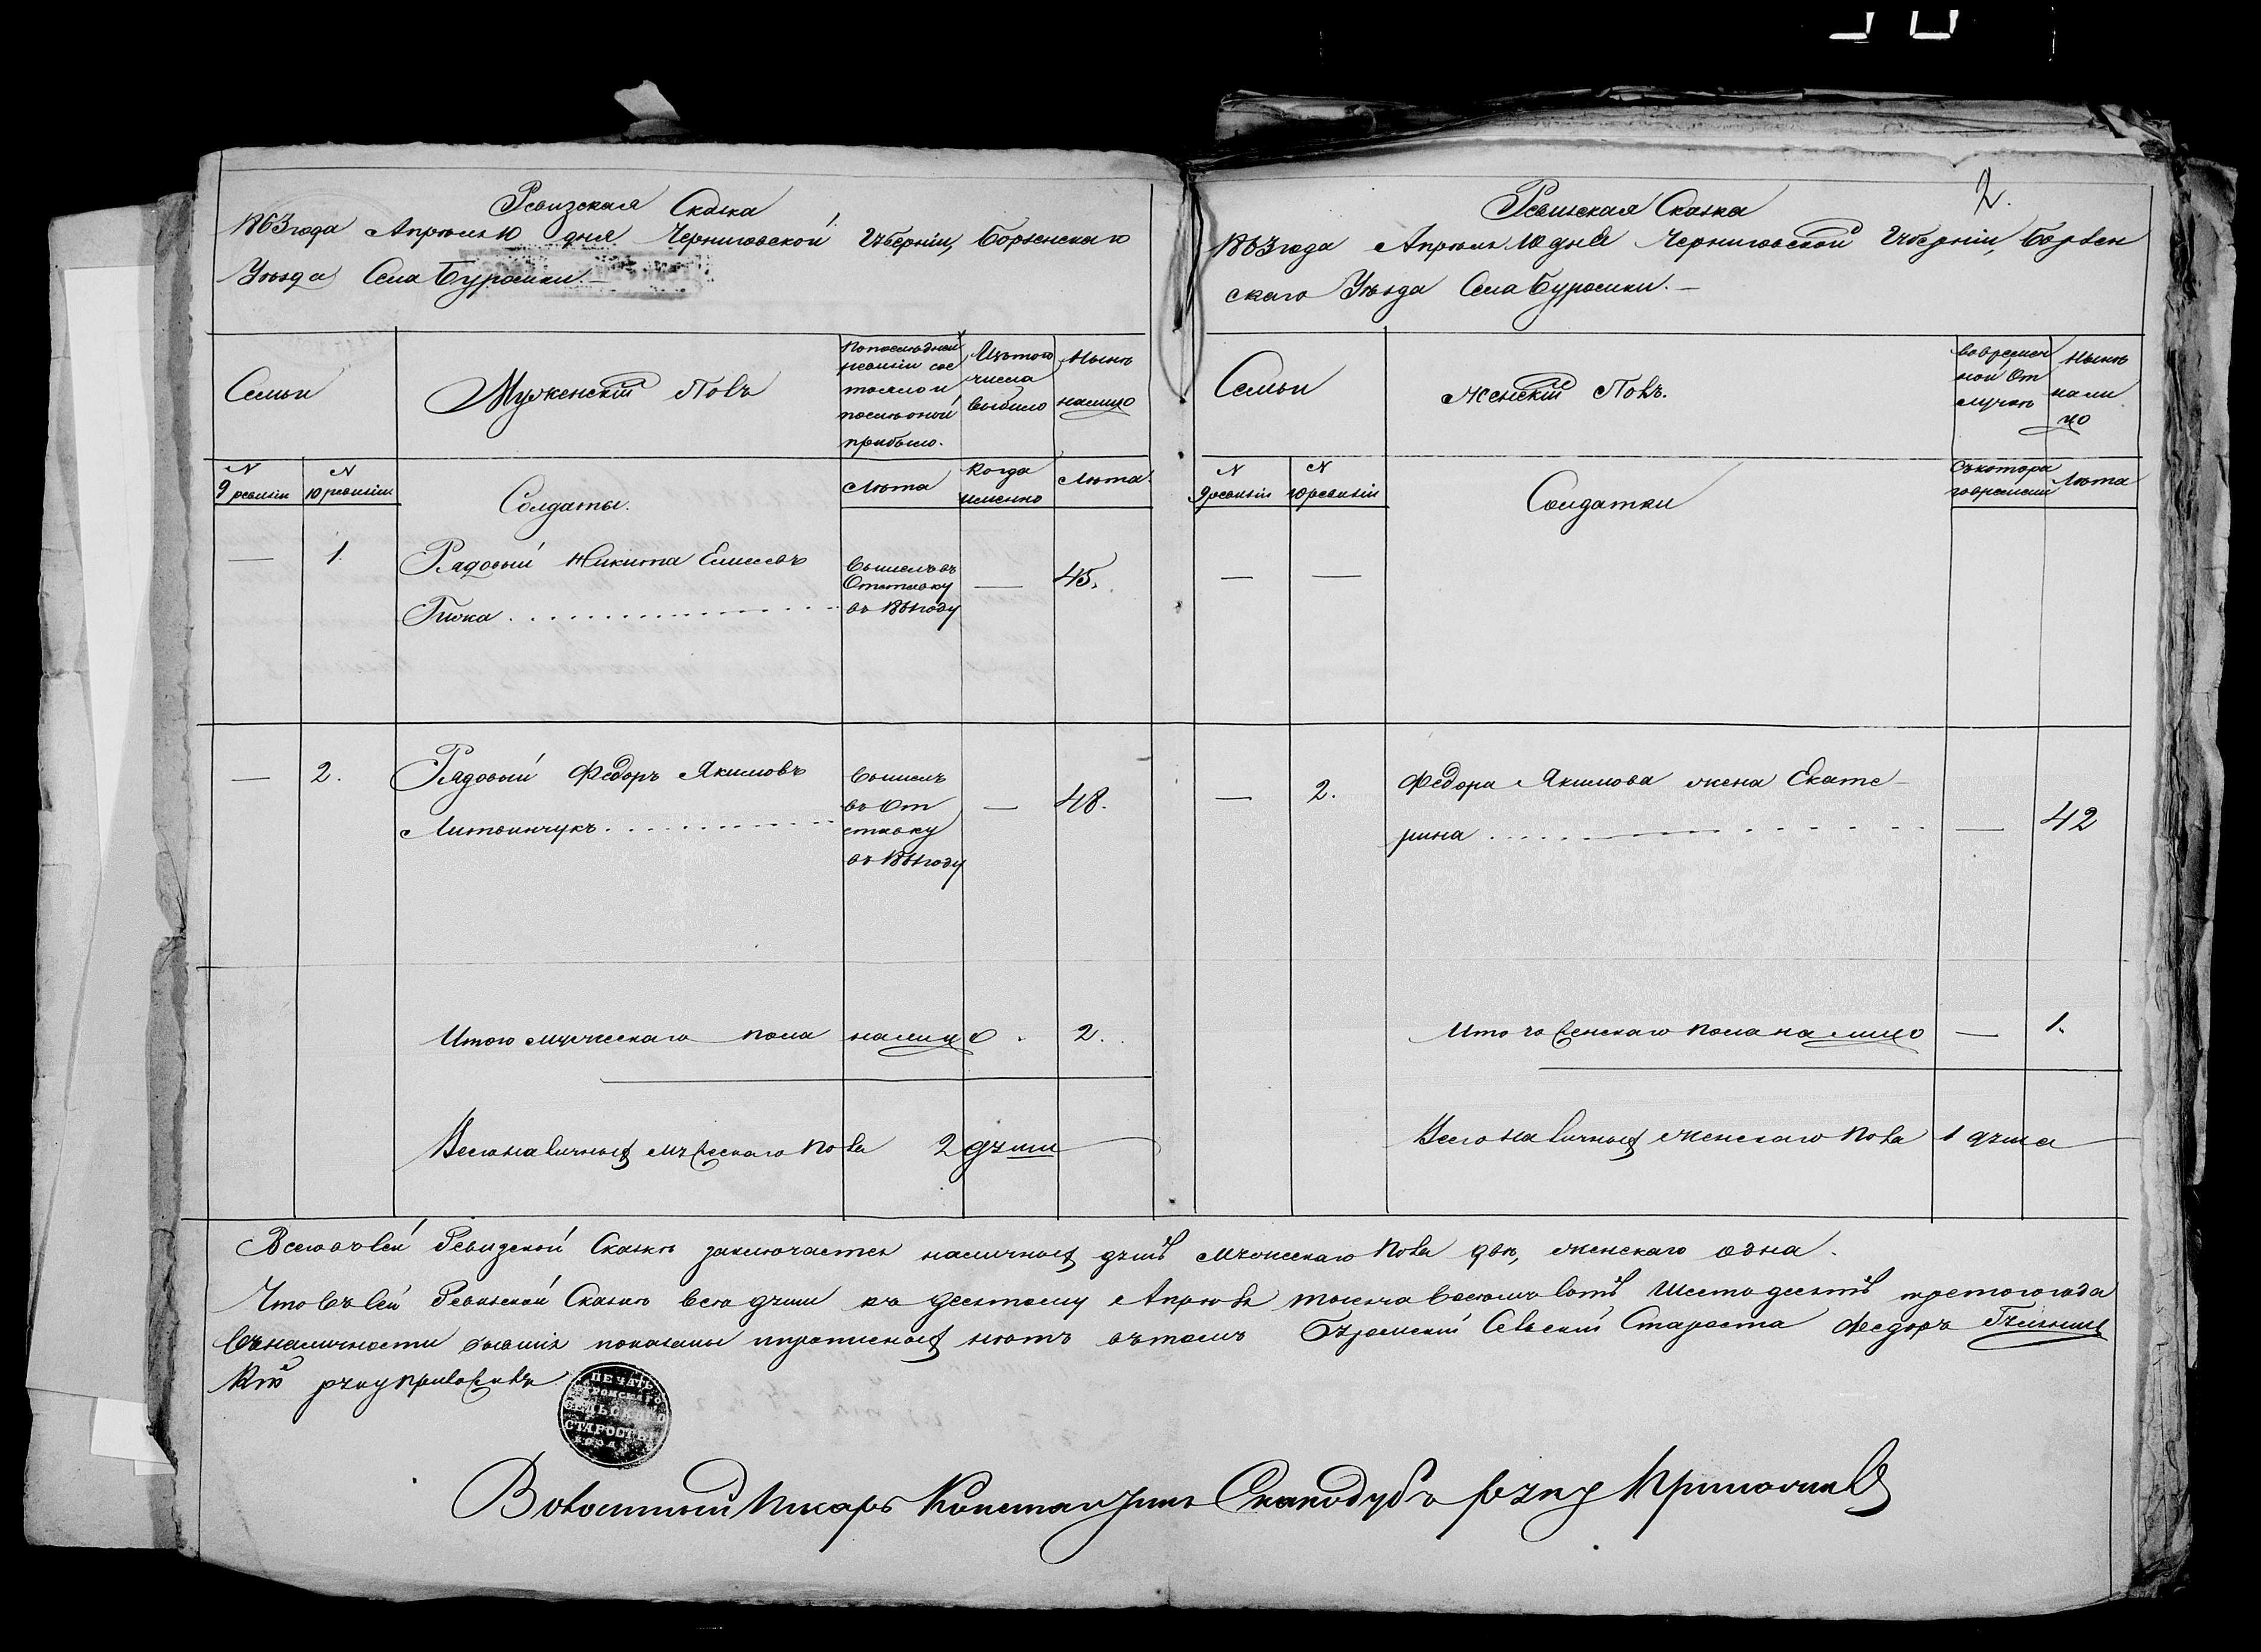 Ревизская Сказка
1863 года Апреля 10 дня Черниговской Губерніи, Борзенскаго
Уезда Села Буромки.—
Семьи
Мужескій Полъ
По последней
ревизіи сос
тояло и
после оной
прибыло.
Изъ того
числа
выбыло
Ныне
налицо
N
9 ревизіи
N
10 ревизіи
Солдаты.
Лета
Когда
именно
Лета.
— 1. Рядовый Никита Елисеевъ
Вышелъ въ
Отставку
въ году
— 45.
— 2. Рядовый Федоръ Якимовъ
Литвинчукъ
Вышелъ
въ От
ставку
въ году
— 48.
Итого мужескаго пола налицо. 2.
Всего наличныхъ мужескаго пола 2 души
2.
Ревизская Сказка
1863 года Апреля 10 дня Черниговской Губерніи, Борзен
скаго Уезда Села Буромки.—
Семьи
Женскій Полъ.
Во времен
ной От
лучке
Ныне
нали
цо
N
9 ревизіи
N
10 ревизіи
Солдатки
Съ котора
го времени
Лета
— —
— 2. Федора Якимова жена Екате-
рина — 42
Итого женскаго пола налицо — 1.
Всего наличныхъ женскаго пола 1 душа
Всего въ сей Ревизской Сказке заключается наличныхъ душъ мужескаго пола две, женскаго одна.
Что въ сей Ревизской Сказке все души къ десятому Апреля тысяча восемь сотъ шестьдесятъ третьяго года
въ наличности бывшія показаны и прописныхъ нетъ въ томъ Буромскій Сельскій Староста Федоръ
руку приложилъ
ПЕЧАТЬ
БУРОМСКАГО
СЕЛЬСКАГО
СТАРОСТЫ
Волостный Писарь Константинъ Скакодубъ руку Приложилъ